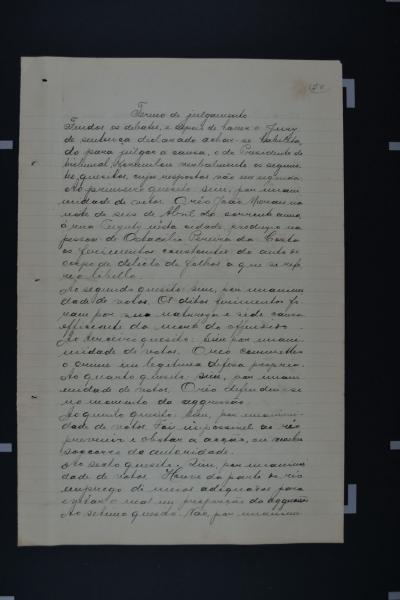 Termo de julgamento
Findos os debates, e depois de haver o Jury
de sentença declarado achar-se habilita
do para julgar a causa, o dr Presidente do
Tribunal, verbalmente os seguin
tes quesitos, cujas respostas vão em seguida
Ao primeiro quesito: Sim, por unani
midade de votos. O réo João Moraes na
noite de seis de Abril do corrente anno,
á rua nesta cidade, produziu na
pessoa de Octacilio Pereira da Costa
os ferimentos constantes do auto de
corpo de delicto de folhas a que se refe
re o libello.
Ao segundo quesito: Sim, por unanimi
dade de votos. Os ditos ferimentos fo
ram por sua natureza e séde causa
efficiente da morte do offendido.
Ao terceiro quesito: Sim por unani
midade de votos. O réo commetteu
o crime em legitima defesa propria.
Ao quarto quesito: Sim, por unani
midade de votos. O réo defendeu-se
no momento da aggressão.
Ao quinto quesito: Sim, por unanimi
dade de votos. Foi impossivel ao réo
prevenir e obstar a acção, ou receber
soccorro da autoridade.
Ao sexto quesito: Sim, por unanimi
dade de votos. Houve da parte do réo
emprego de meios adequados para
evitar o mal em proporção da aggressão
Ao setimo quesito: Não, por unanimi